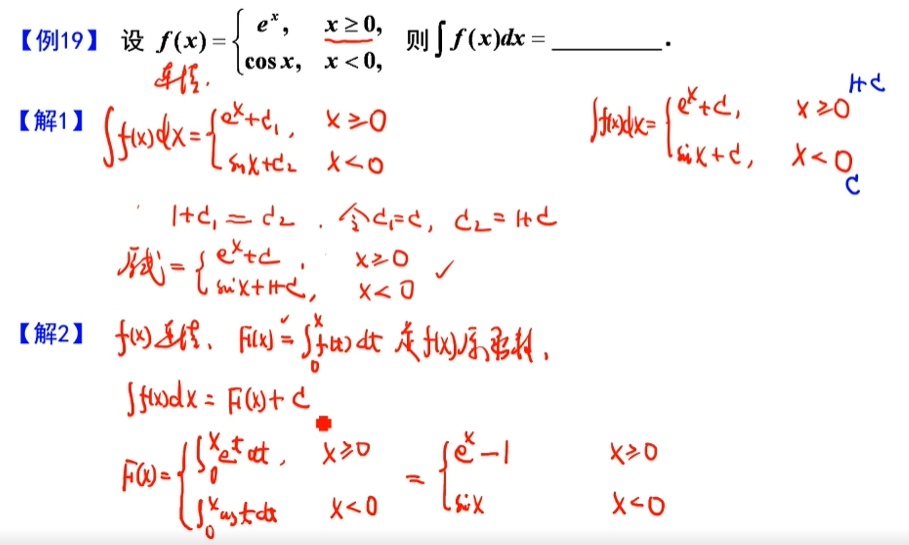 【例19】 设 f(x) = { e^x, x ≥ 0, cos x, x < 0, 则 ∫ f(x)dx = ________ .
连续.
【解1】 ∫f(x)dx = { e^x+C₁, x≥0 sin x+C₂ x<0
∫f(x)dx = { e^x+C, x≥0 sin x+C, x<0
1+C
C
1+C₁ = C₂ . 令C₁=C, C₂=1+C
原式 = { e^x+C , x≥0 sin x+1+C, x<0 ✓
【解2】 f(x)连续, F(x) = ∫₀^x f(t)dt 是f(x)原函数,
∫f(x)dx = F(x)+C
F(x) = { ∫₀^x e^t dt, x≥0 ∫₀^x cos t dt x<0 = { e^x −1 x≥0 sin x x<0